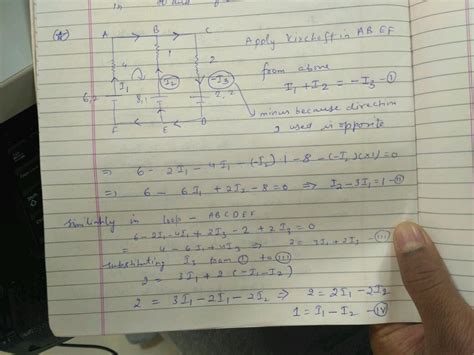 A B C
Apply Kirchoff in ABEF
4 1 2
I₁ I₂ -I₃
from above
I₁ + I₂ = -I₃ - (I)
6,2 8,1 2,2
F E D
minus because direction
I used is opposite
⇒ 6 - 2I₁ - 4I₁ - (-I₂)1 - 8 - (-I₂)(×1) = 0
⇒ 6 - 6I₁ + 2I₂ - 8 = 0 ⇒ I₂ - 3I₁ = 1 - (II)
Similarly in loop - ABCDEF
6 - 2I₁ - 4I₁ + 2I₃ - 2 + 2I₃ = 0
= 4 - 6I₁ + 4I₃ ⇒ 2 = 3I₁ + 2I₃ - (III)
substituting I₃ from (I) to (III)
2 = 3I₁ + 2(-I₁ - I₂)
2 = 3I₁ - 2I₁ - 2I₂ ⇒ 2 = 2I₁ - 2I₂
1 = I₁ - I₂ - (IV)